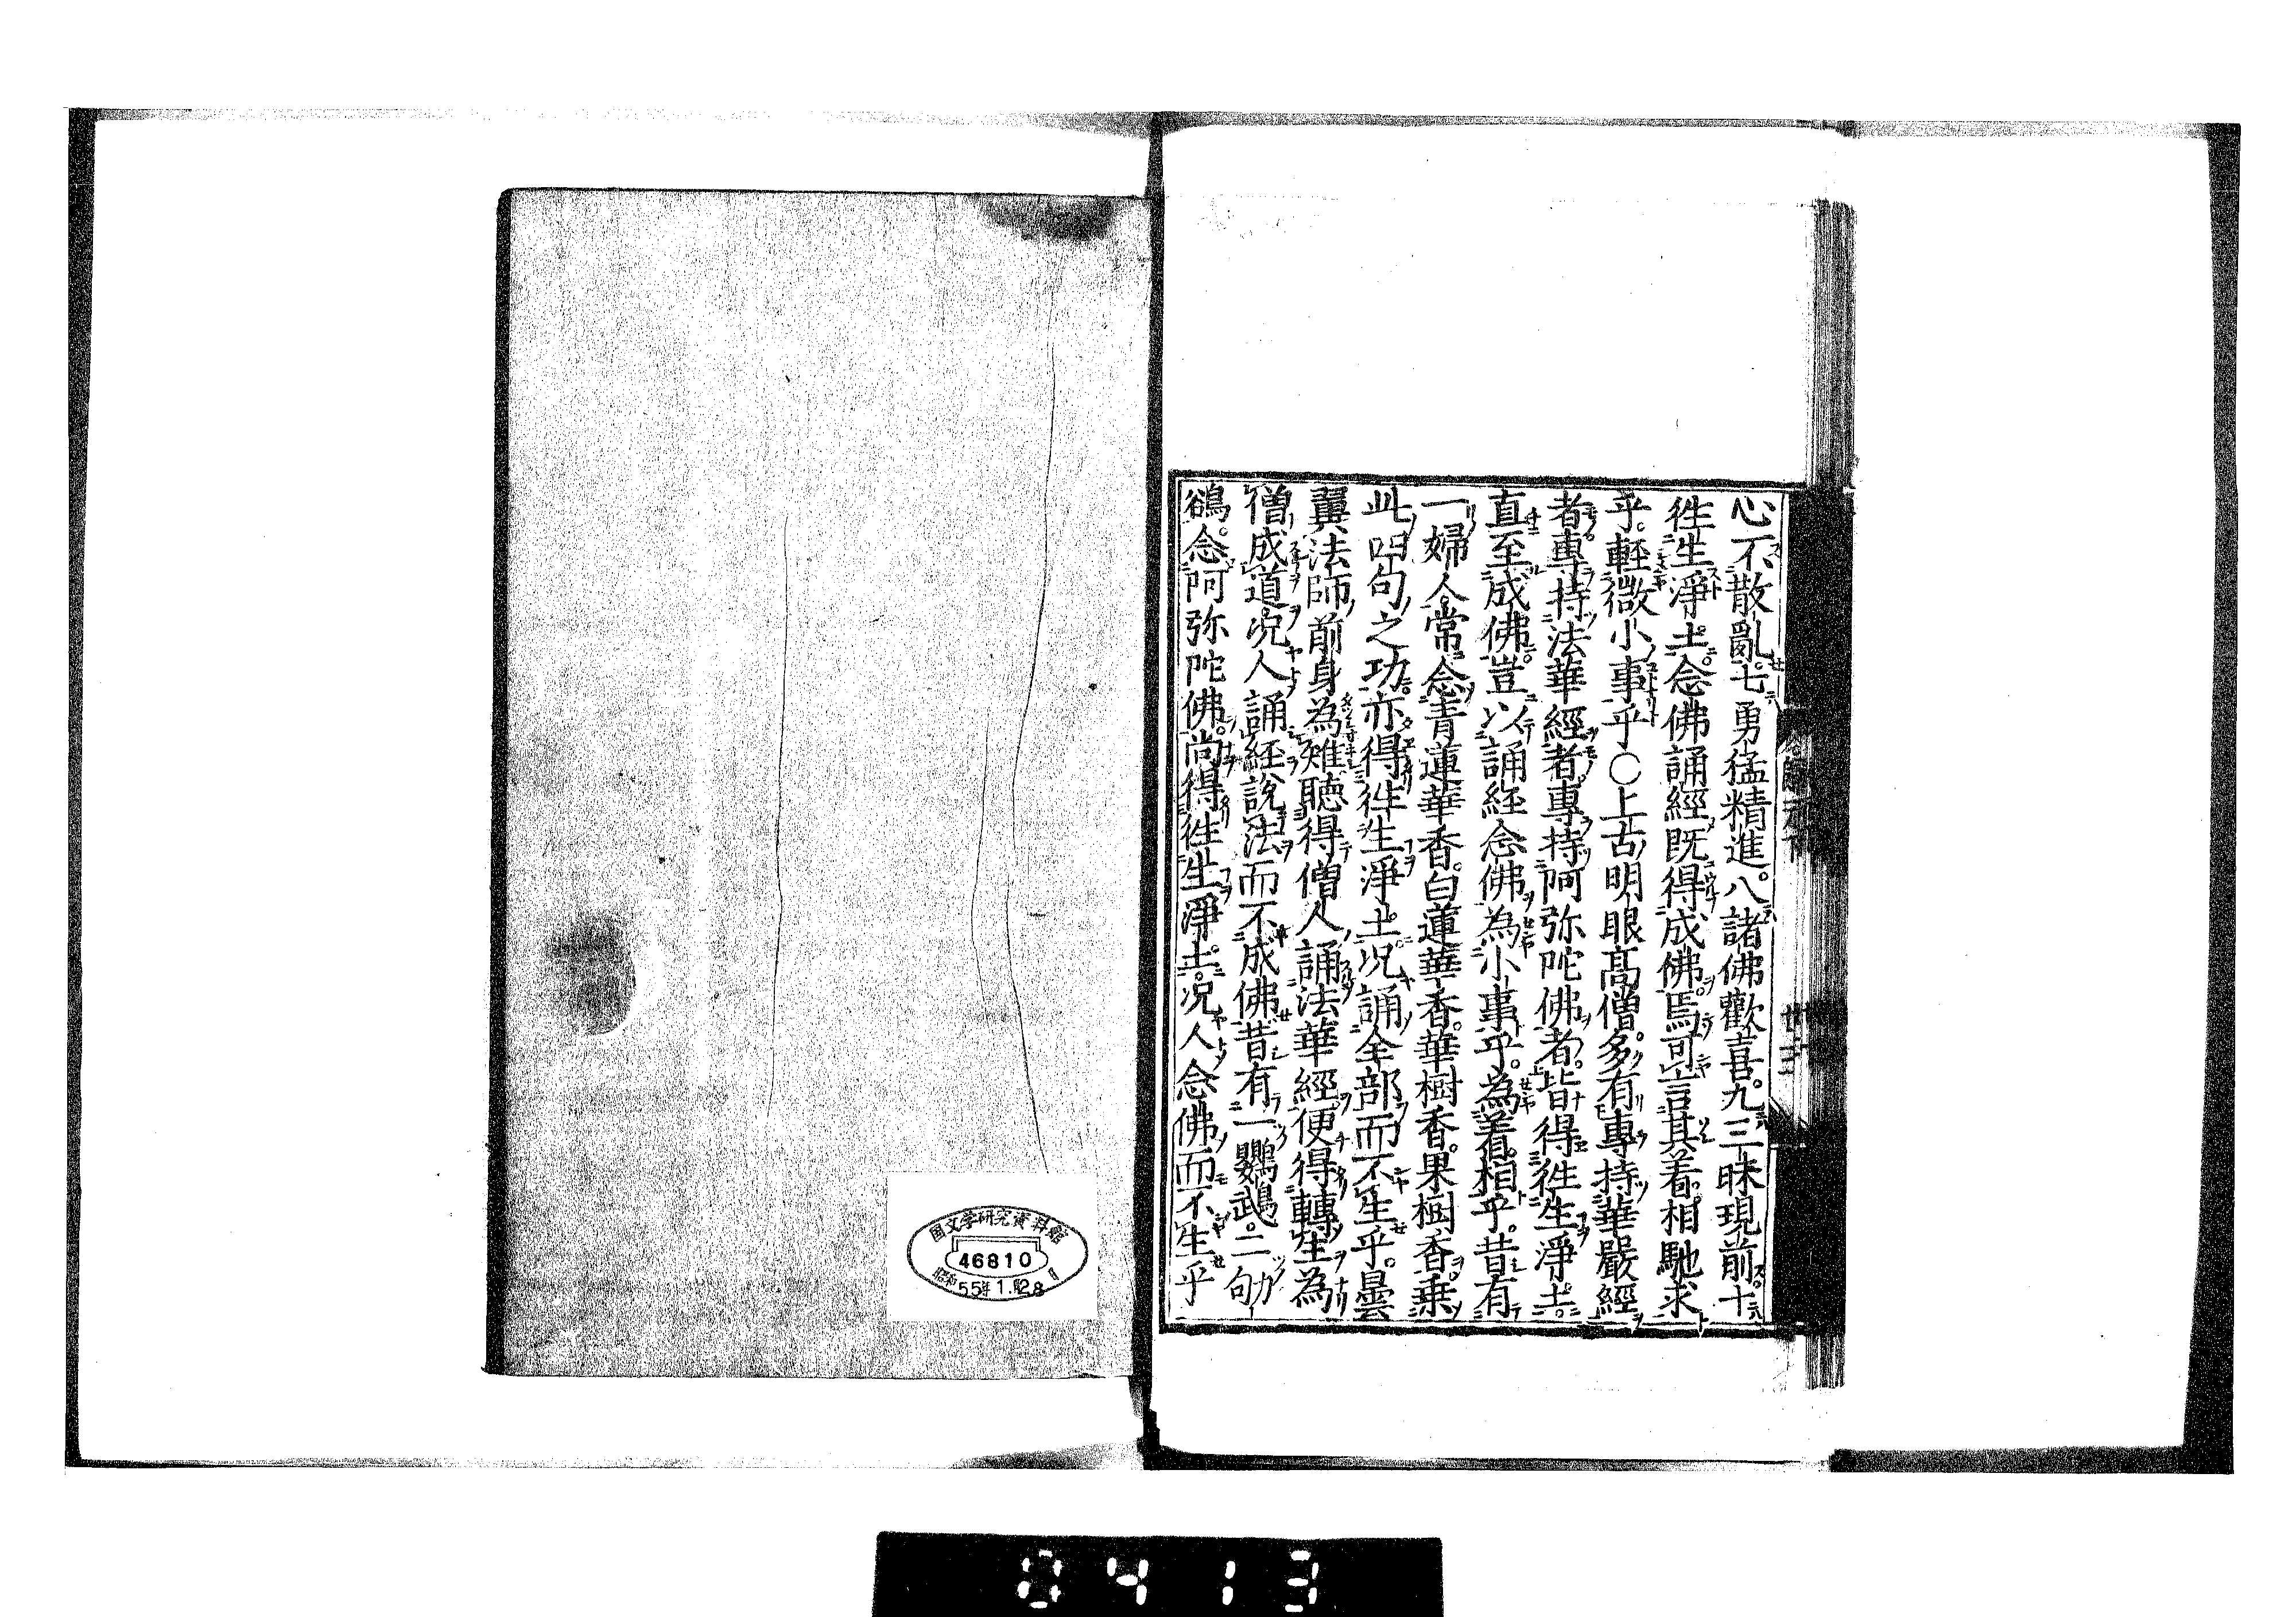 心不散亂七勇猛精進。八諸佛歡喜。九三昧現前。十
徃生淨土。念佛誦經既得成佛。焉可言其着相馳求
乎。輕微小事乎○上古明眼高僧。多有專持華嚴經
者。專持法華經者。專持阿弥陀佛者。皆得徃生淨土。
直至成佛。豈以誦經念佛為小事乎。為着相乎。昔有
一婦人。常念青蓮華香。白蓮華香。華樹香。果樹香。乗
此四句之功。亦得徃生淨土。况誦全部而不生乎。曇
翼法師前身為雉聴得僧人誦法華經便得轉生為
僧成道况人誦経說法而不成佛昔有一鸚鵡。二
鵒。念阿弥陀佛。尚得徃生淨土。况人念佛而不生乎
国文学研究資料館
46810
昭和55年1.月28日
0413